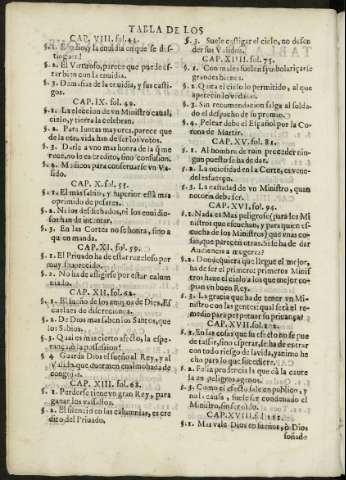 TABLA DE LOS
CAP. VIII. fol. 43.
§. 1. El odio, y la enuidia en que se distinguen?
§. 2. El Virtuoso, parece que puede estar bien con la enuidia.
§. 3. Dama de la enuidia, y sus castigos.
CAP. IX. fol. 49.
§. 1. La eleccion de vn Ministro causal, cielo, y tierra la celebran.
§. 2. Para Iuntas mayores, parece que de la otra vida han de ser los votos.
§. 3. Darle a vno mas honra de la que no es credito, sino confusion.
§. 4. Medicos para conseruarse vn Valido.
CAP. X. fol. 55.
§. 1. El mas sabio, y superior està mas oprimido de pesares.
§. 2. Ni los desdichados, ni los enuidiosos han de
§. 3. En las Cortes no se honra, sino a quien manda.
CAP. XI. fol. 59.
§. 1. El Priuado ha de estar rezeloso por muy fauorecido.
§. 2. No ha de afligirse por estar calumniado.
CAP. XII. fol. 62.
§. 1. El sueño de los amigos de Dios, Escuelas de discreciones.
§. 2. De Dios mas saben los Santos, que los Sabios.
§. 3. Qual es mas cierto afecto, la esperança, ò la possession?
§. 4. Guarda Dios el sueño al Rey, y al Valido, que duermen en almohada de congojas.
CAP. XIII. fol. 68.
§. 1. Perderse tiene vn gran Rey, para ganar los vassallos.
§. 2. El silencio en las calumnias, es credito del Priuado.
§. 3. Suele castigar el cielo, no desender sus Validos.
CAP. XIIII. fol. 75.
§. 1. Con males suelen symbolizarse grandes bienes.
§. 2. Quita el cielo lo permitido, al que apeteciò lo vedado.
§. 3. Sin recomendacion salga al soldado el despacho de su premio.
§. 4. Pelear debe el Español por la Corona de Martir.
CAP. XV. fol. 81.
§. 1. Al hombre de ruin proceder ninguno puesto se ha de dar.
§. 2. La ociosidad en la Corte, es veneno del sossiego.
§. 3. La castidad de vn Ministro, quan notoria debe ser.
CAP. XVI. fol. 94.
§. 1. Nada es mas peligroso (para los Ministros que escuchan, y para quien escucha de los Ministros) que vnas cosas, que parecen otras. Si se ha de dar Audiencia a mugeres?
§. 2. Donde quiera que llegue el mejor, ha de ser el primero: primeros Ministros haze el cielo a los que mejor copian vn buen Rey.
§. 3. La gracia que ha de tener vn Ministro con las gentes: qual será el remedio para perpetuar su priuança?
CAP. XVII. fol. 102.
§. 1. En las cosas que su efecto no se puede tassar, sino esperar, se ha de estar con todo riesgo de la vida, y animo hecho para lo que sucediere.
§. 2. Es la prudencia la que dà la caure la en peligros agenos.
§. 3. Como el efecto sale en publico, y no la causa, suele ser condenado el Ministro, sin serlo.
CAP. XVIII. fol. 111.
§. 1. Mas vale Dios en sueños, ò Dios
soñado